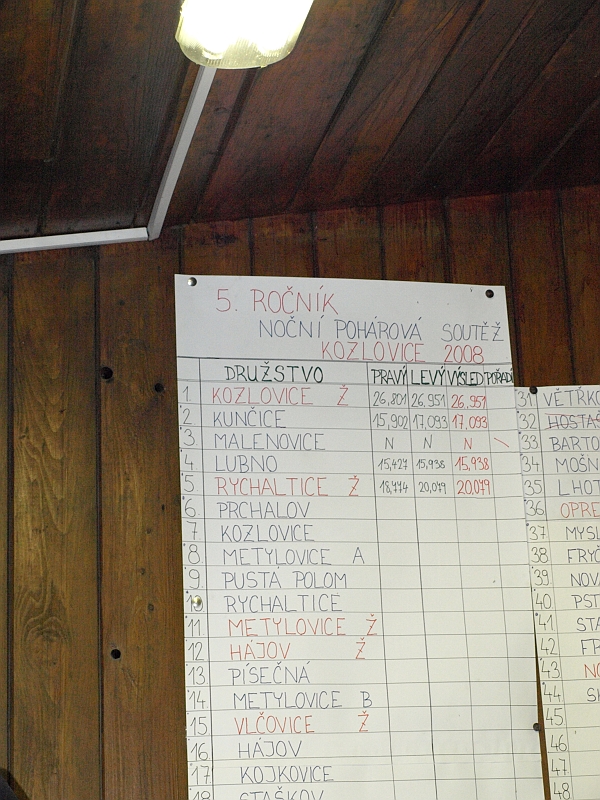 5. ROČNÍK
NOČNÍ POHÁROVÁ SOUTĚŽ
KOZLOVICE 2008
DRUŽSTVO PRAVÝ LEVÝ VÝSLED POŘADÍ
1. KOZLOVICE Ž 26,801 26,951 26,951
2 KUNČICE 15,902 17,093 17,093
3. MALENOVICE N N N \
4. LUBNO 15,427 15,938 15,938
5 RYCHALTICE Ž 18,774 20,079 20,079
6 PRCHALOV
7 KOZLOVICE
8 METYLOVICE A
9 PUSTÁ POLOM
10 RYCHALTICE
11 METYLOVICE Ž
12 HÁJOV Ž
13 PÍSEČNÁ
14 METYLOVICE B
15 VLČOVICE Ž
16 HÁJOV
17 KOJKOVICE
18 STAŠKOV
31 VĚTŘKO
32 HOSTAŠ
33 BARTO
34 MOŠN
35 LHOT
36 OPRE
37 MYSL
38 FRYČ
39 NOVÁ
40 PST
41 STA
42 FR
43 NO
44
45
46
47
48